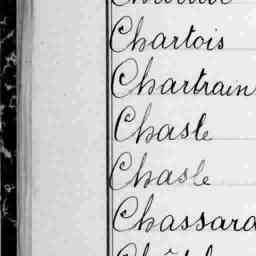 Chartois
Chartrain
Chasle
Chasle
Chassard